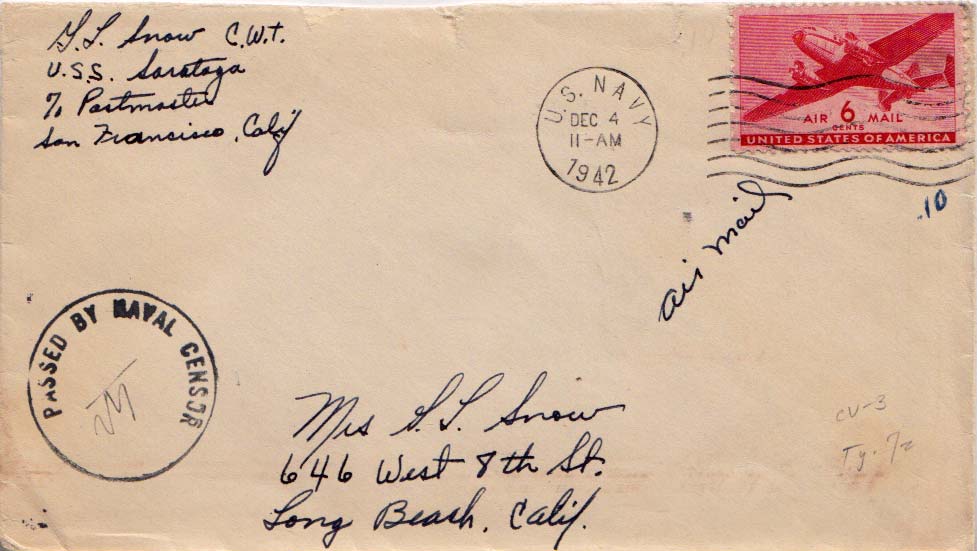 G.L. Snow C.W.T.
U.S.S. Saratoga
℅ Postmaster
San Francisco, Calif
U.S. NAVY
DEC 4
11-AM
1942
AIR 6 MAIL
CENTS
UNITED STATES OF AMERICA
.10
air mail
PASSED BY NAVAL CENSOR
Mrs G.L. Snow
646 West 8th St.
Long Beach, Calif.
CV-3